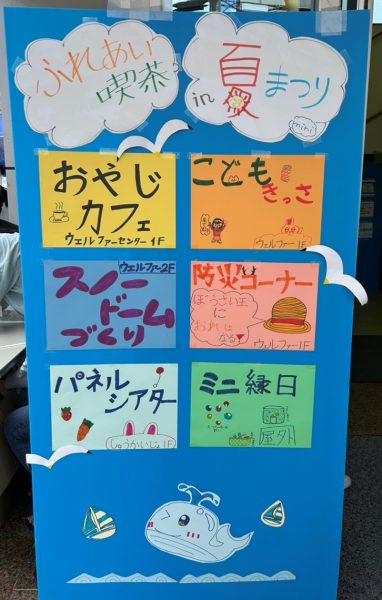 ふれあい
喫茶
in 夏まつり
mini
おやじ
カフェ
ウェルファーセンター 1F
こども
きっさ
ウェルファー1F
ウェルファー2F
スノー
ドーム
づくり
防災コーナー
ぼうさい王
に
おれは
なる
ウェルファー1F
パネル
シアター
しゅうかいじょ1F
ミニ縁日
屋外